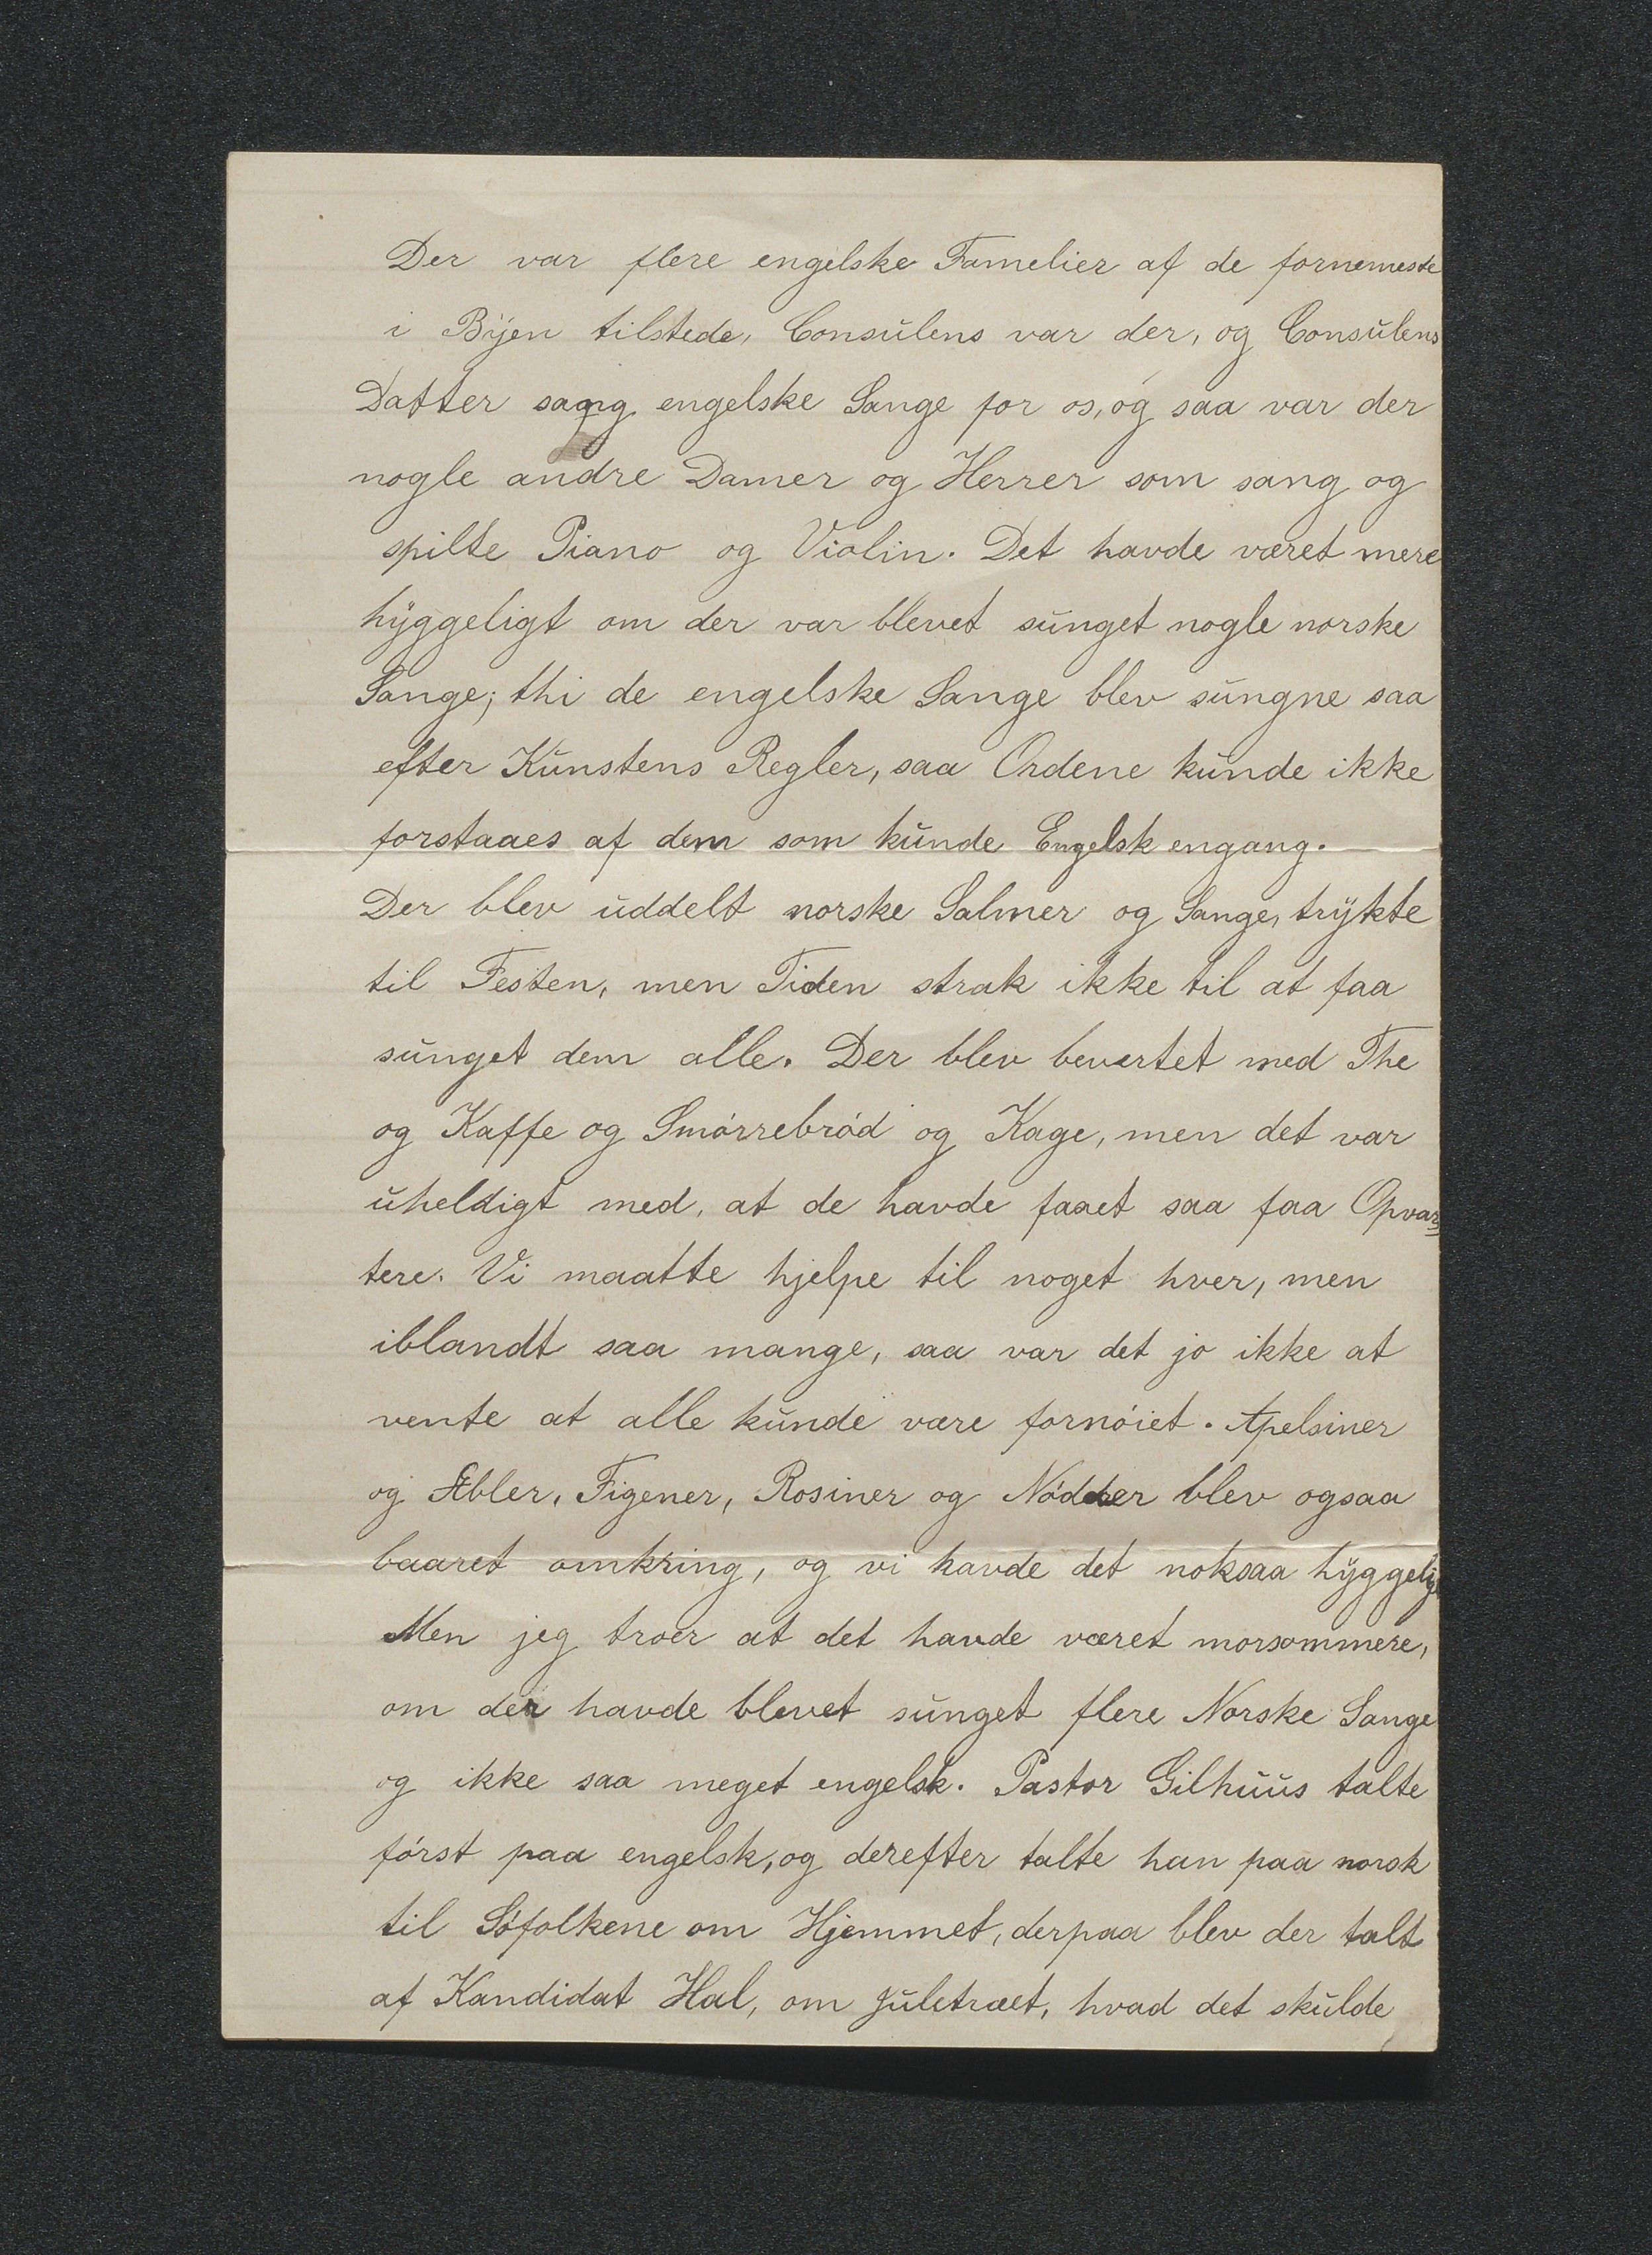 Der var flere engelske Famelier af de fornemeste
i Byen tilstede, Consulens var der, og Consulens
Datter sang engelske Sange for os, og saa var der
nogle andre Damer og Herrer som sang og
spilte Piano og Violin. Det havde været mere
hyggeligt om der var blevet sunget nogle norske
Sange; thi de engelske Sange blev sungne saa
efter Kunstens Regler, saa Ordene kunde ikke
forstaaes af dem som kunde Engelsk engang.
Der blev uddelt norske Salmer og Sange, trykte
til Festen, men Tiden strak ikke til at faa
sunget dem alle. Der blev bevertet med The
og Kaffe og Smórrebród og Kage, men det var
uheldigt med, at de havde faaet saa faa Opvar=
tere. Vi maatte hjelpe til noget hver, men
iblandt saa mange, saa var det jo ikke at
vente at alle kunde være fornóiet. Apelsiner
og Æbler, Figener, Rosiner og Nódder blev ogsaa
baaret omkring, og vi havde det noksaa hyggelig
Men jeg troer at det havde været morsommere,
om der havde blevet sunget flere Norske Sange
og ikke saa meget engelsk. Pastor Gilhuus talte
fórst paa engelsk, og derefter talte han paa norsk
til Sófolkene om Hjemmet, derpaa blev der talt
af Kandidat Hal, om Juletræet, hvad det skulde